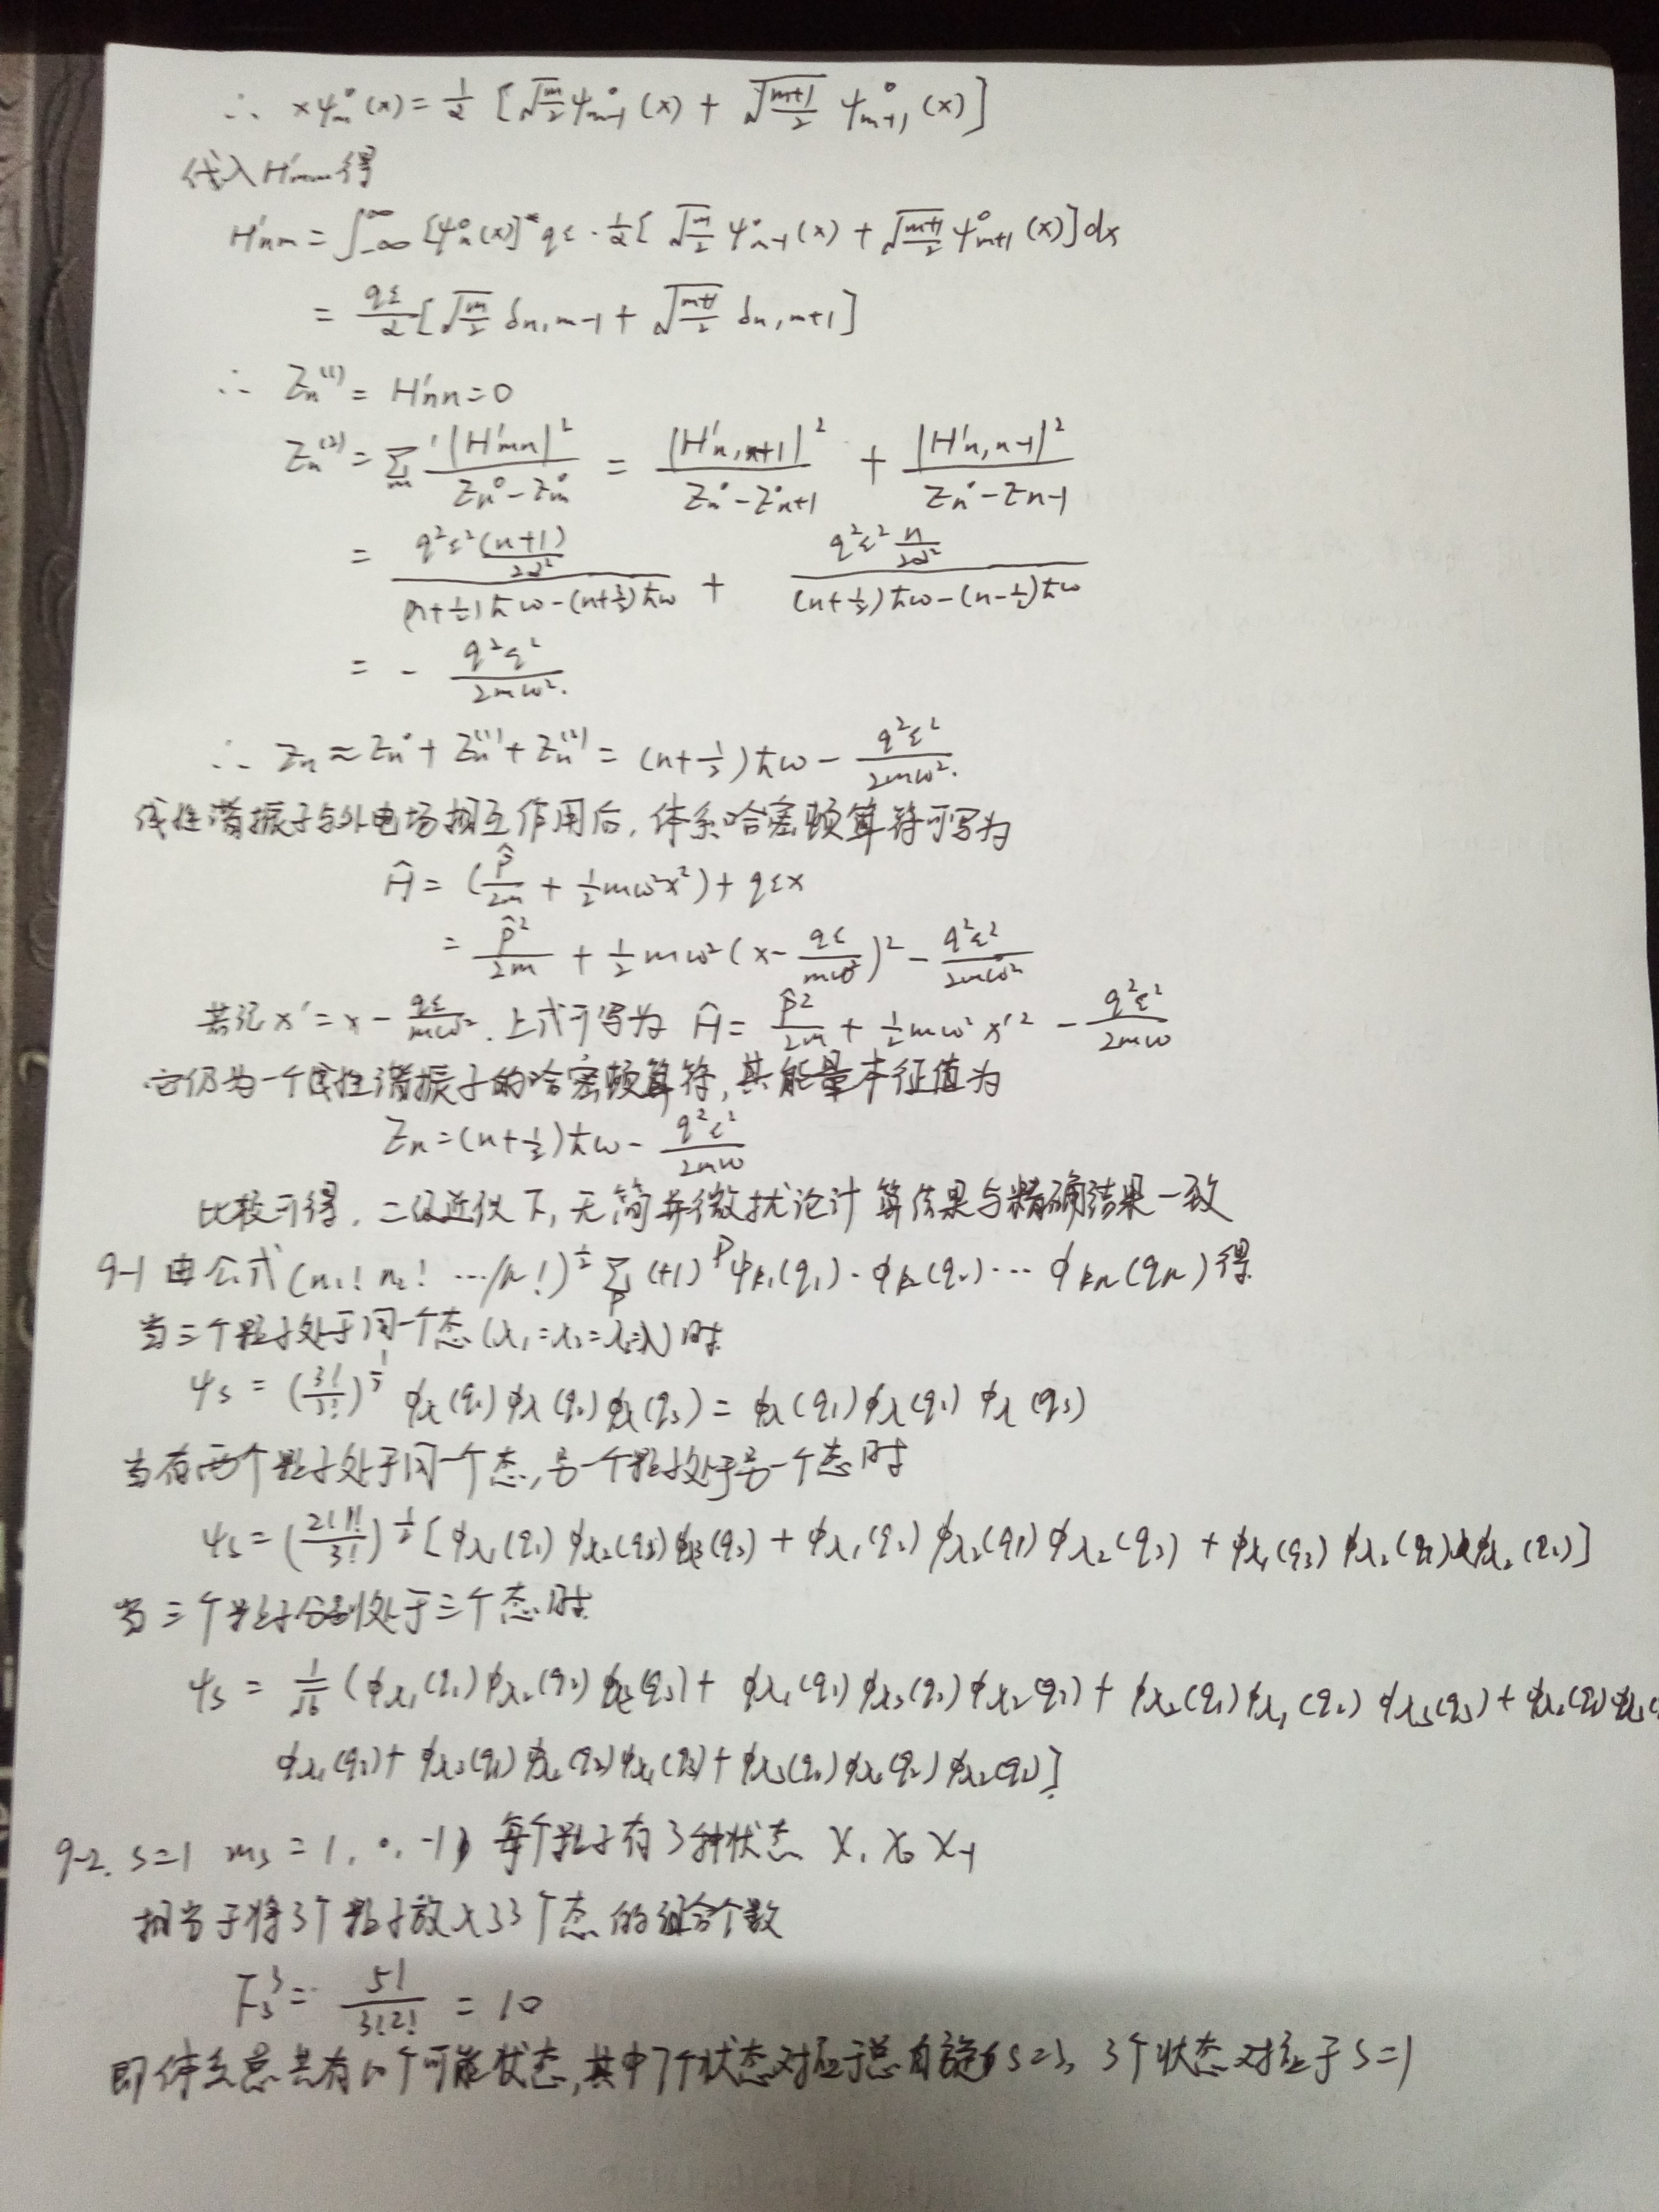 ∴ xψm°(x) = 1/α [√(m/2) ψ°m-1(x) + √((m+1)/2) ψ°m+1(x)]
代入H'nm得
H'nm = ∫_-∞^∞ [ψn°(x)]* qε · 1/α [√(m/2) ψ°n-1(x) + √((m+1)/2) ψ°m+1(x)]dx
= qε/α [√(m/2) δn,m-1 + √((m+1)/2) δn,m+1]
∴ En⁽¹⁾ = H'nn = 0
En⁽²⁾ = Σm' |H'mn|²/(En°-Em°) = |H'n,n+1|²/(En°-E°n+1) + |H'n,n-1|²/(En°-En-1)
= q²ε²(n+1)/2α² / ((n+1/2)ħω-(n+3/2)ħω) + q²ε² n/2α² / ((n+1/2)ħω-(n-1/2)ħω)
= - q²ε²/2mω².
∴ En ≈ En° + En⁽¹⁾ + En⁽²⁾ = (n+1/2)ħω - q²ε²/2mω².
线性谐振子与外电场相互作用后,体系哈密顿算符可写为
Ĥ = (p̂/2m + 1/2 mω²x²) + qεx
= p̂²/2m + 1/2 mω²(x - qε/mω²)² - q²ε²/2mω²
若记x' = x - qε/mω². 上式可写为 Ĥ = p̂²/2m + 1/2 mω²x'² - q²ε²/2mω
它仍为一个线性谐振子的哈密顿算符,其能量本征值为
En = (n+1/2)ħω - q²ε²/2mω
比较可得,二级近似下,无简并微扰论计算结果与精确结果一致
9-1 由公式 (n1! n2! ···/n!)^½ Σp (+1)^P φk1(q1)·φk2(q2)···φkn(qn)得
当三个粒子处于同一个态(λ1=λ2=λ3=λ)时
ψs = (3!/3!)^½ φλ(q1)φλ(q2)φλ(q3) = φλ(q1)φλ(q2)φλ(q3)
当有两个粒子处于同一个态,另一个粒子处于另一个态时
ψs = (2!1!/3!)^½ [φλ1(q1)φλ2(q2) (q3) + φλ1(q2)φλ2(q1)φλ2(q3) + φλ1(q3)φλ2(q1)φλ2(q2)]
当三个粒子分别处于三个态时
ψs = 1/√6 (φλ1(q1)φλ2(q2)φλ3(q3) + φλ1(q1)φλ3(q2)φλ2(q3) + φλ2(q1)φλ1(q2)φλ3(q3) + φλ2(q1)φλ3(
φλ1(q3) + φλ3(q1)φλ2(q2)φλ1(q3) + φλ3(q1)φλ1(q2)φλ2(q3)]
9-2. s=1 ms = 1, 0, -1, 每个粒子有3种状态 χ1 χ0 χ-1
相当于将3个粒子放入3个态的组合个数
F3³ = 5!/3!2! = 10
即体系总共有10个可能状态,其中7个状态对应于总自旋S=3, 3个状态对应于S=1